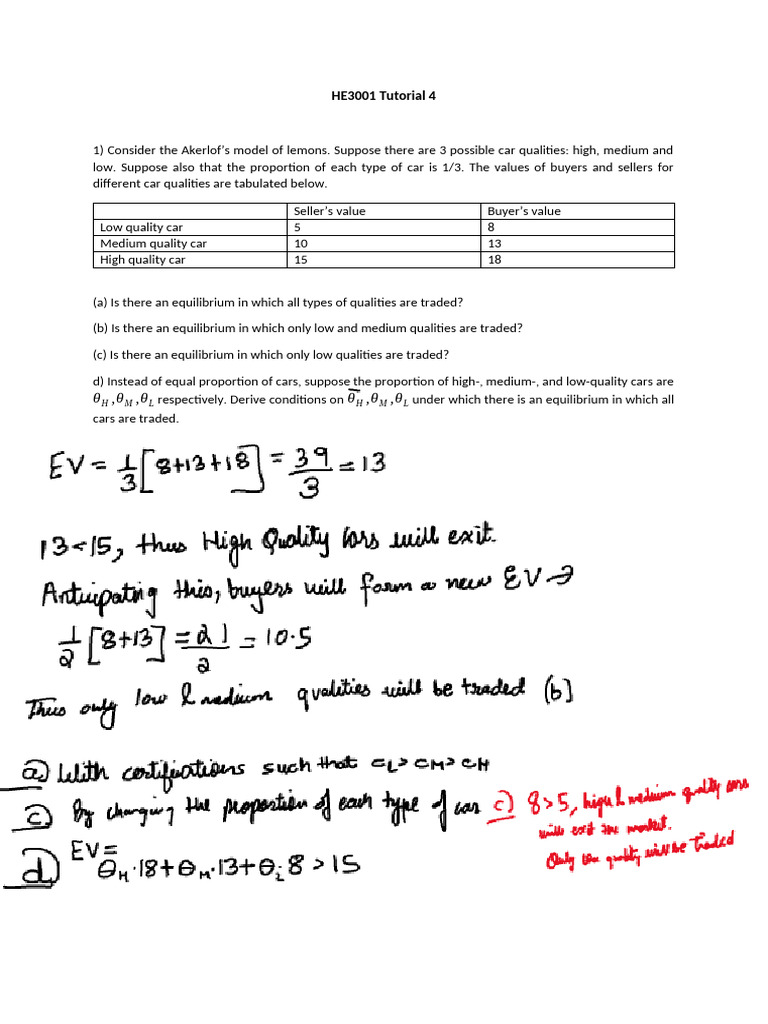 HE3001 Tutorial 4
1) Consider the Akerlof's model of lemons. Suppose there are 3 possible car qualities: high, medium and
low. Suppose also that the proportion of each type of car is 1/3. The values of buyers and sellers for
different car qualities are tabulated below.
Seller's value Buyer's value
Low quality car 5 8
Medium quality car 10 13
High quality car 15 18
(a) Is there an equilibrium in which all types of qualities are traded?
(b) Is there an equilibrium in which only low and medium qualities are traded?
(c) Is there an equilibrium in which only low qualities are traded?
d) Instead of equal proportion of cars, suppose the proportion of high-, medium-, and low-quality cars are
θ_H ,θ_M ,θ_L respectively. Derive conditions on θ_H ,θ_M ,θ_L under which there is an equilibrium in which all
cars are traded.
EV = 1/3 [8+13+18] = 39/3 = 13
13<15, thus High Quality cars will exit.
Anticipating this, buyers will form a new EV →
1/2 [8+13] = 21/2 = 10.5
Thus only low & medium qualities will be traded (b)
a) With certifications such that CL> CM> CH
c) By changing the proportion of each type of car
c) 8>5, high & medium quality cars
will exit the market.
Only low quality will be traded
d) EV=
θ_H·18+θ_M·13+θ_L·8 > 15